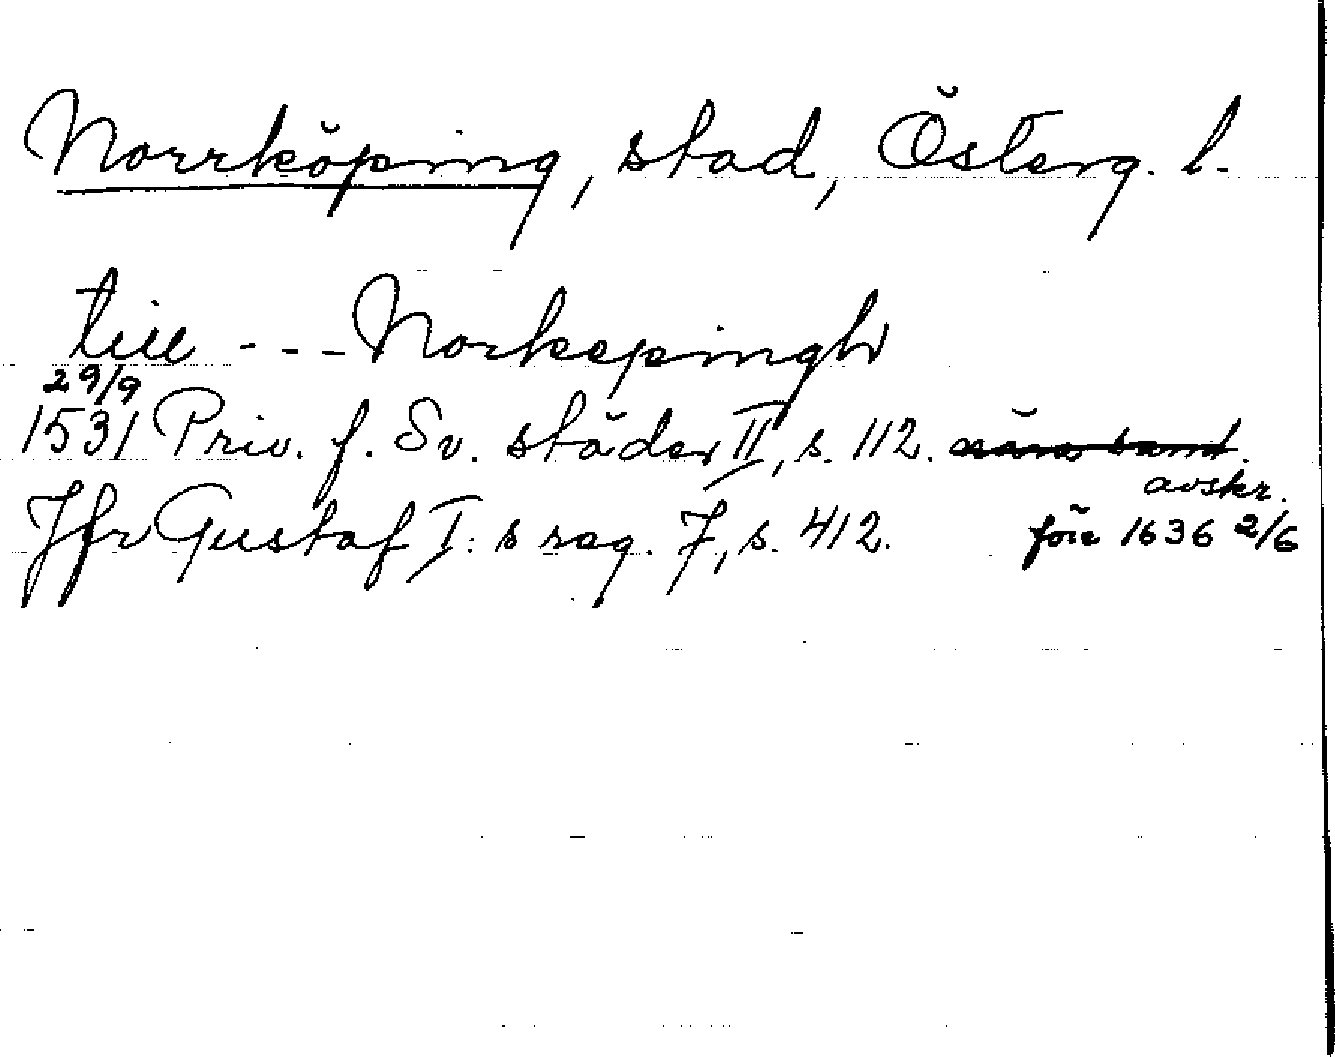 Norrköping, stad, Österg. l.
till --- Norkepingh
29/9
1531 Priv. f. Sv. städer II, s. 112.
avskr.
Jfr Gustaf I:s reg. 7, s. 412. före 1636 2/6